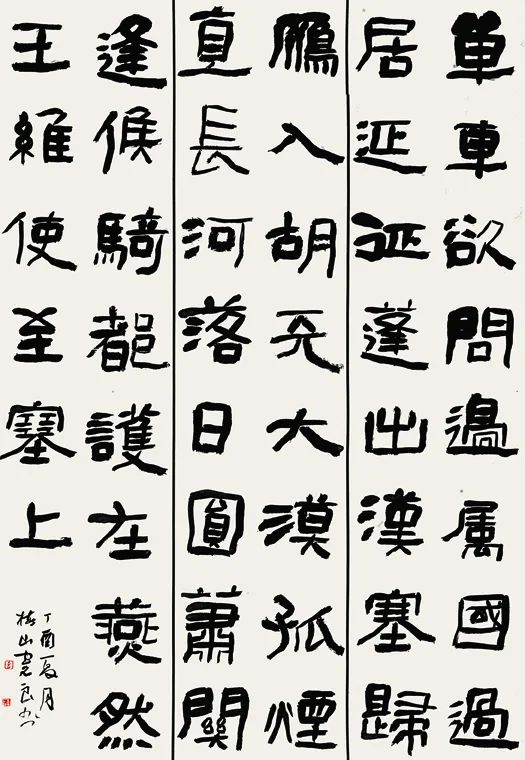 單車欲問邊属國過
居延征蓬出漢塞歸
鴈入胡天大漠孤煙
直長河落日圓蕭關
逢候騎都護在燕然
王維使至塞上
丁酉夏月
山